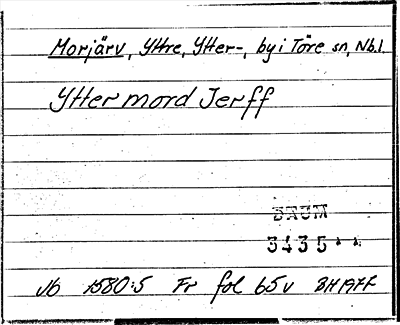 Morjärv, Yttre, Ytter-, by i Töre sn, Nb.l.
Ytter mord Jerff
BAUM
3435
Jb 1580:5 Fr fol 65v BH 1977